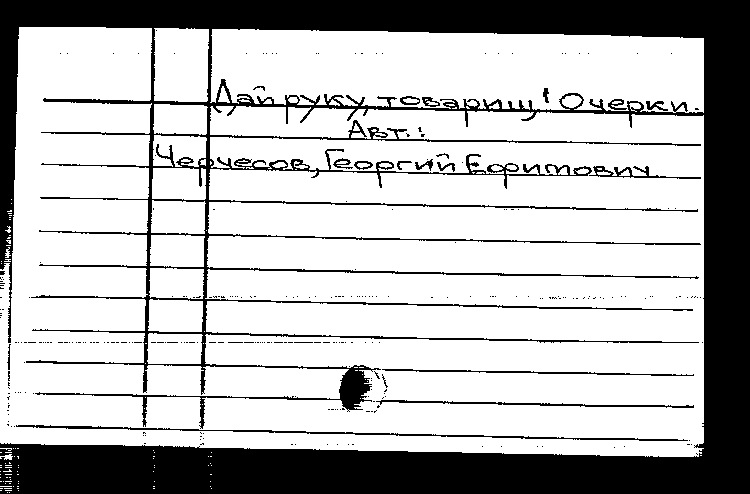 Дай руку, товарищ! Очерки.
Авт.:
Черчесов, Георгий Ефимович